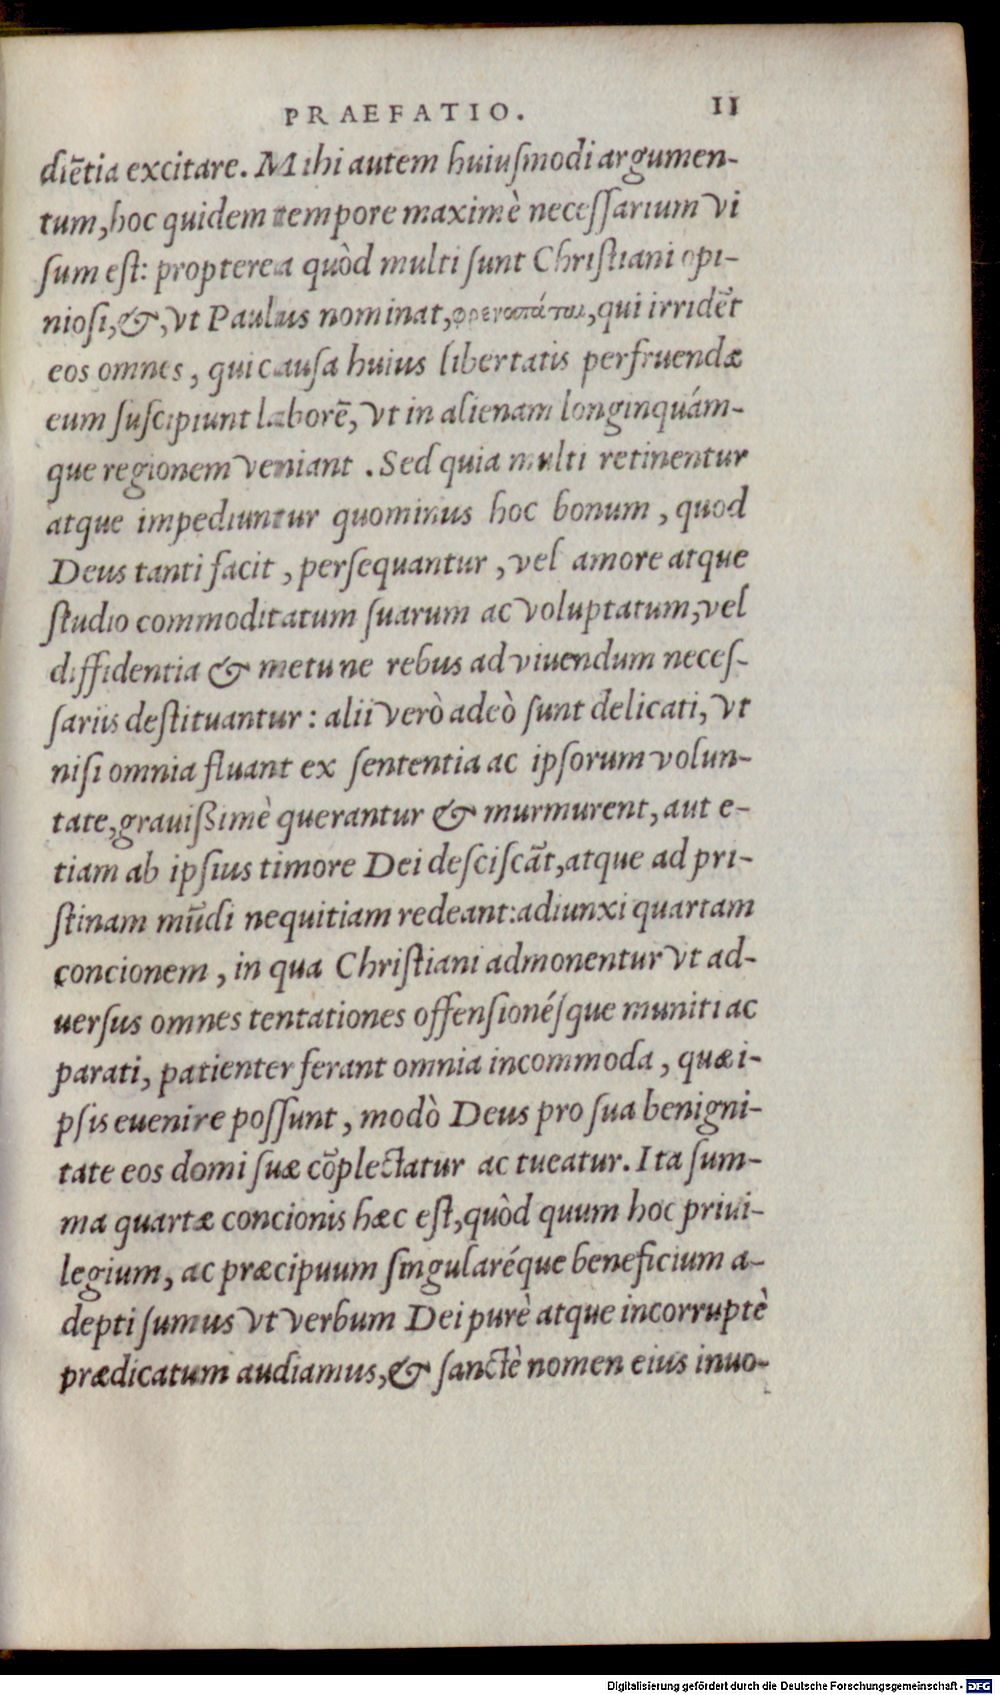 PRAEFATIO. 11
diẽtia excitare. Mihi autem huiuſmodi argumen-
tum, hoc quidem tempore maximè neceſſarium vi
ſum eſt: propterea quòd multi ſunt Chriſtiani opi-
nioſi, &, vt Paulus nominat, φρεναπάται, qui irridẽt
eos omnes, qui cauſa huius libertatis perfruendæ
eum ſuſcipiunt laborẽ, vt in alienam longinquám-
que regionem veniant. Sed quia multi retinentur
atque impediuntur quominus hoc bonum, quod
Deus tanti facit, perſequantur, vel amore atque
ſtudio commoditatum ſuarum ac voluptatum, vel
diffidentia & metu ne rebus ad viuendum neceſ-
ſariis deſtituantur: alii verò adeò ſunt delicati, vt
niſi omnia fluant ex ſententia ac ipſorum volun-
tate, grauißimè querantur & murmurent, aut e-
tiam ab ipſius timore Dei deſciſcãt, atque ad pri-
ſtinam mũdi nequitiam redeant: adiunxi quartam
concionem, in qua Chriſtiani admonentur vt ad-
uerſus omnes tentationes offenſionéſque muniti ac
parati, patienter ferant omnia incommoda, quæ i-
pſis euenire poſſunt, modò Deus pro ſua benigni-
tate eos domi ſuæ cõplectatur ac tueatur. Ita ſum-
ma quartæ concionis hæc eſt, quòd quum hoc priui-
legium, ac præcipuum ſingularéque beneficium a-
depti ſumus vt verbum Dei purè atque incorruptè
prædicatum audiamus, & ſanctè nomen eius inuo-
Digitalisierung gefördert durch die Deutsche Forschungsgemeinschaft - DFG